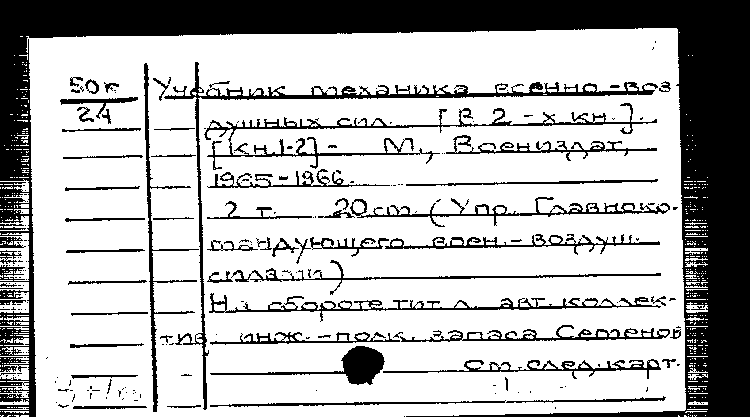 50к Учебник механика военно-воз-
24 душных сил. [В 2-х кн.].
[Кн.1-2] - М., Воениздат,
1965-1966.
2 т. 20 см (Упр. Главноко-
мандующего воен.-воздуш.
силами)
На обороте тит. л. авт. коллек-
тив: инж.-полк. запаса Семенов
См. след. карт.